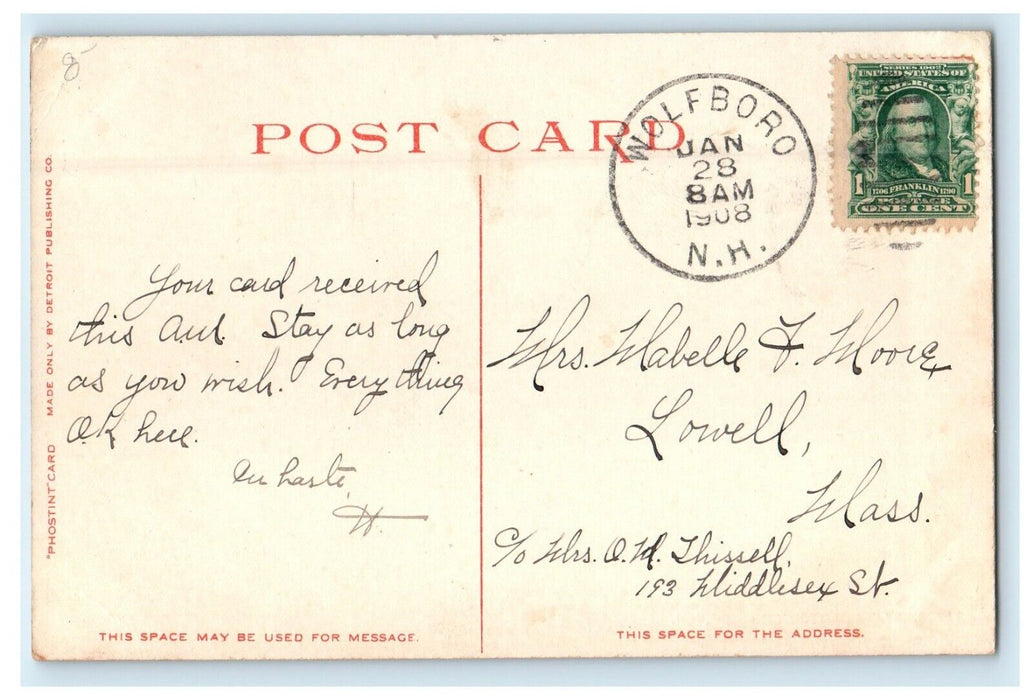 8
POST CARD
WOLFBORO
JAN
28
8AM
1908
N.H.
SERIES 1902
UNITED STATES OF
AMERICA
1 1
1706 FRANKLIN 1790
POSTAGE
ONE CENT
"PHOSTINT" CARD MADE ONLY BY DETROIT PUBLISHING CO.
Your card received
this Stay as long
as you wish. Every thing
O.K here.
In haste,
H.
Mrs. Mabelle F. Moore
Lowell,
Mass.
c/o Mrs. O. M. Thissell,
193 Middlesex St.
THIS SPACE MAY BE USED FOR MESSAGE.
THIS SPACE FOR THE ADDRESS.